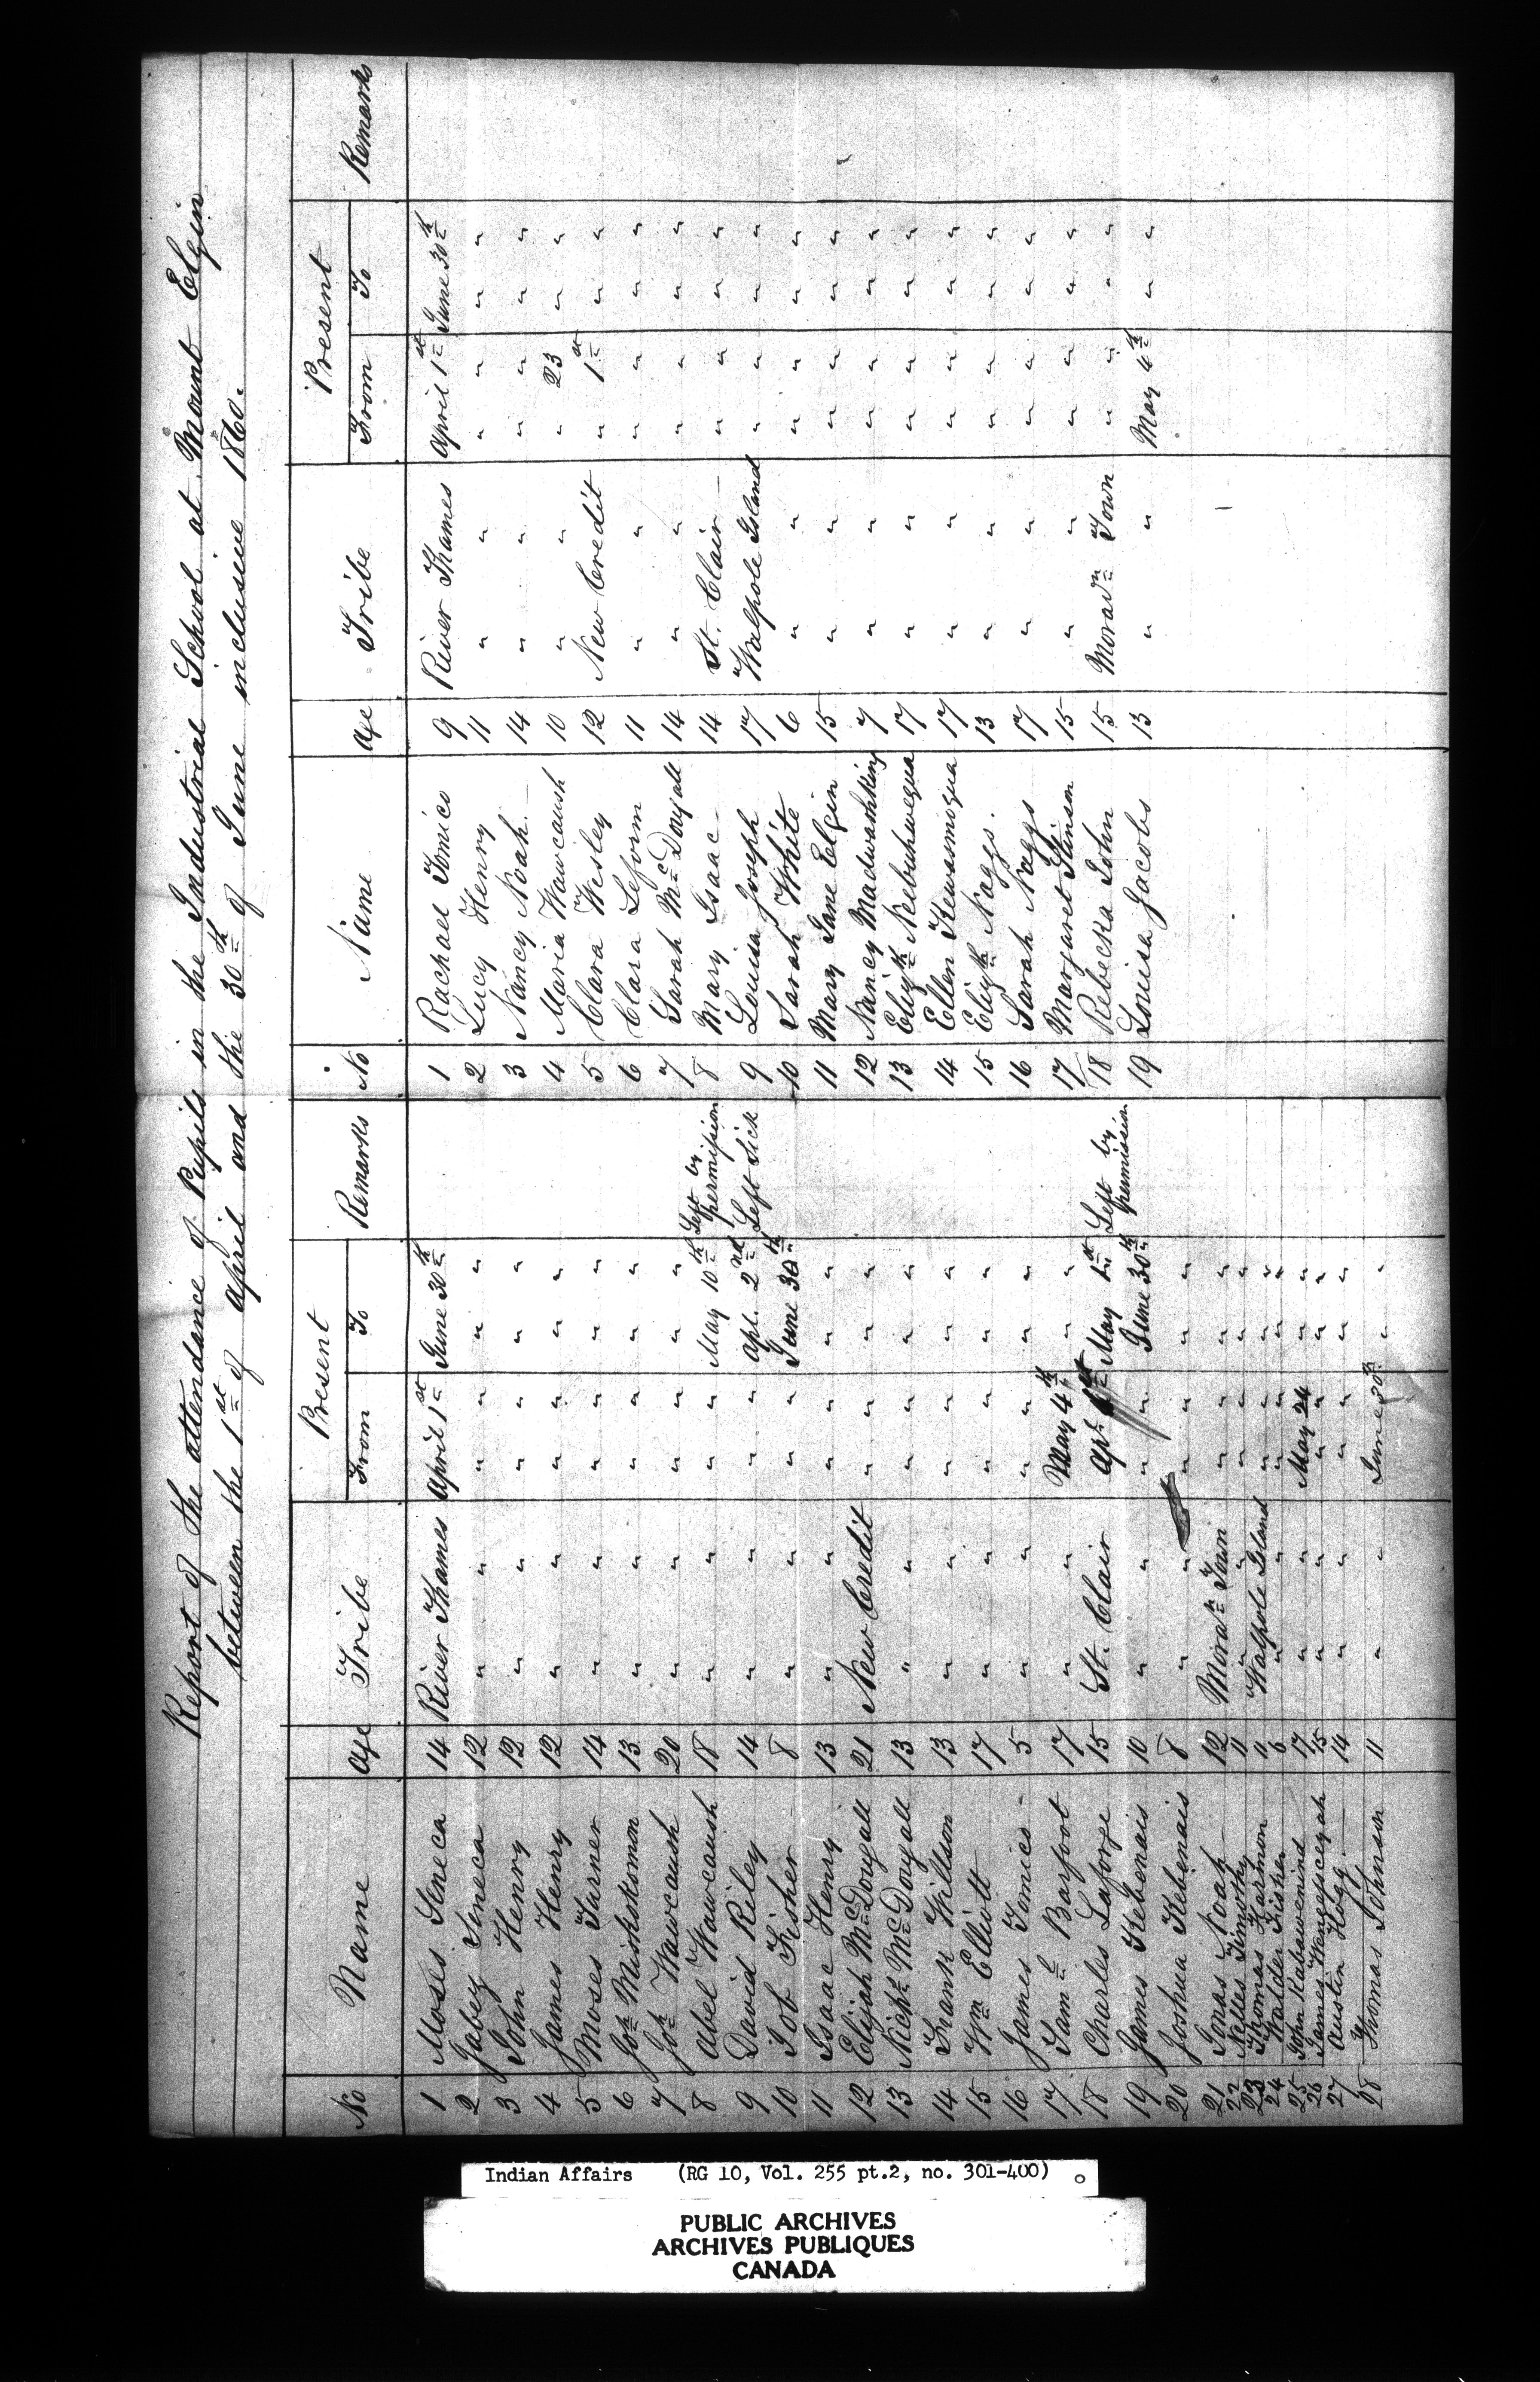 Report of the attendance of Pupils in the Industrial School at Mount Elgin
between the 1st of April and the 30th of June inclusive 1860.
No Name Age Tribe Present From To Remarks
1 Moses Seneca 14 River Thames April 1st June 30th
2 Jabez Seneca 12 " " " " " "
3 John Henry 12 " " " " " "
4 James Henry 12 " " " " " "
5 Moses Turner 14 " " " " " "
6 Joh Muskokomon 13 " " " " " "
7 Joh Wawcaush 20 " " " " " "
8 Abel Wawcaush 18 " " " " May 10th Left by permission
9 David Riley 14 " " " " Apl. 2nd Left Sick
10 Job Fisher 8 " " " " June 30th
11 Isaac Henry 13 " " " " " "
12 Elijah McDougall 21 New Credit " " " "
13 Richd McDougall 13 " " " " " "
14 Frank Willson 13 " " " " " "
15 Wm Elliott 17 " " " " " "
16 James Tomico 5 " " " " " "
17 Saml Barfoot 17 " " May 4th " "
18 Charles Laforge 15 St. Clair Apl 1st May 1st Left by permission
19 James Kebenais 10 " " " " June 30th
20 Joshua Kebenais 8 " " " " " "
21 Jonas Noah 12 Moran Town " " " "
22 Nelles Timothy 11 " " " " " "
23 Thomas Harmon 11 Walpole Island " " " "
24 Walder Fisher 6 " " " " " "
25 John Kabawenind 17 " " May 24 " "
26 James 15 " " " " " "
27 Austin Hogg 14 " " " " " "
28 Thomas Johnson 11 " " June 20th " "
No Name Age Tribe Present From To Remarks
1 Rachael Tomico 9 River Thames April 1st June 30th
2 Lucy Henry 11 " " " " " "
3 Nancy Noah 14 " " " " " "
4 Maria Wawcaush 10 " " " 23 " "
5 Clara Wesley 12 New Credit " 1st " "
6 Clara Leform 11 " " " " " "
7 Sarah McDougall 14 " " " " " "
8 Mary Isaac 14 St. Clair " " " "
9 Louisa Joseph 17 Walpole Island " " " "
10 Sarah White 6 " " " " " "
11 Mary Jane Elgin 15 " " " " " "
12 Nancy Madwashking 7 " " " " " "
13 Elizth Nebuhwequa 17 " " " " " "
14 Ellen Kewasmiqua 17 " " " " " "
15 Elizth Naggs. 13 " " " " " "
16 Sarah Naggs 17 " " " " " "
17 Margaret Stinson 15 " " " " " "
18 Rebecka John 15 Moravn Town " " " "
19 Louisa Jacobs 13 " " May 4th " "
Indian Affairs (RG 10, Vol. 255 pt.2, no. 301-400)
PUBLIC ARCHIVES
ARCHIVES PUBLIQUES
CANADA